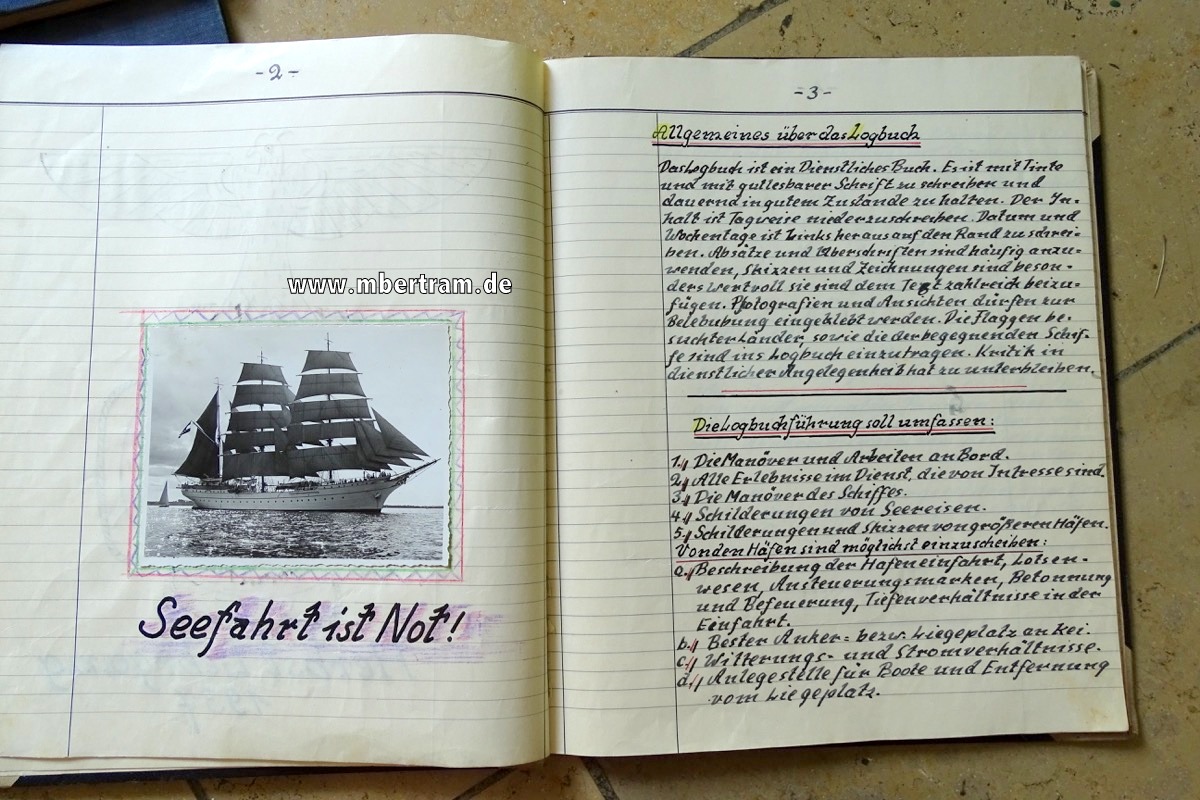 -2-
www.mbertram.de
Seefahrt ist Not!
-3-
Allgemeines über das Logbuch
Das Logbuch ist ein Dienstliches Buch. Es ist mit Tinte
und mit gutlesbarer Schrift zu schreiben und
dauernd in gutem Zustande zu halten. Der In-
halt ist Tagweise niederzuschreiben. Datum und
Wochentage ist Links heraus auf den Rand zu schrei-
ben. Absätze und Überschriften sind häufig anzu-
wenden, Skizzen und Zeichnungen sind beson-
ders wertvoll sie sind dem Text zahlreich beizu-
fügen. Photografien und Ansichten dürfen zur
Belebubung eingeklebt werden. Die Flaggen be-
suchter Länder, sowie die der begegnenden Schif-
fe sind ins Logbuch einzutragen. Kritik in
dienstlicher Angelegenheit hat zu unterbleiben.
Die Logbuchführung soll umfassen:
1.) Die Manöver und Arbeiten an Bord.
2.) Alle Erlebnisse im Dienst, die von Intresse sind.
3.) Die Manöver des Schiffes.
4.) Schilderungen von Seereisen.
5.) Schilderungen und Skizzen von größeren Häfen.
Von den Häfen sind möglichst einzuschreiben:
a.) Beschreibung der Hafeneinfahrt, Lotsen-
wesen, Ansteuerungsmarken, Betonnung
und Befeuerung, Tiefenverhältnisse in der
Einfahrt.
b.) Bester Anker= bezw. Liegeplatz an Kei.
c.) Witterungs- und Stromverhältnisse.
d.) Anlegestelle für Boote und Entfernung
vom Liegeplatz.